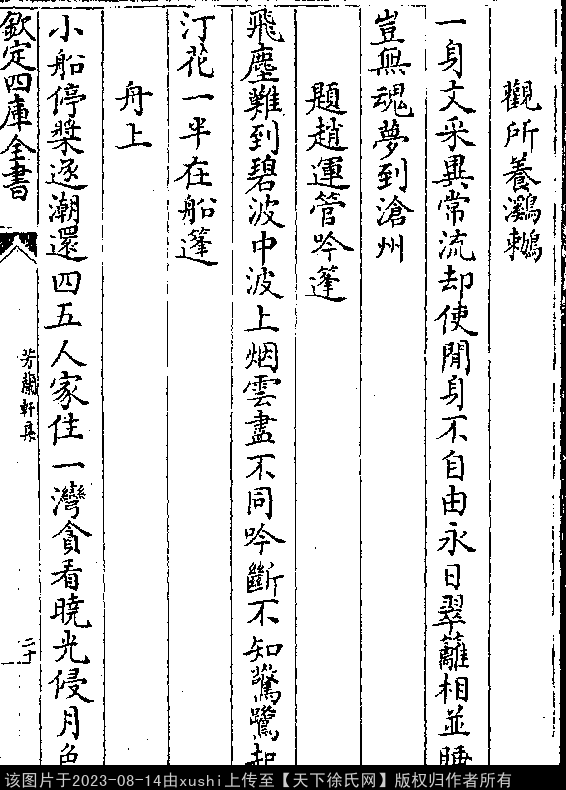 觀所養鸂鶒
一身文采異常流却使閒身不自由永日翠籬相並睡
豈無魂夢到滄州
題趙運管吟篷
飛塵難到碧波中波上烟雲盡不同吟斷不知驚鷺起
汀花一半在船篷
舟上
小船停槳逐潮還四五人家住一灣貪看曉光侵月色
欽定四庫全書
芳蘭軒集
二十
该图片于2023-08-14由xushi上传至【天下徐氏网】版权归作者所有